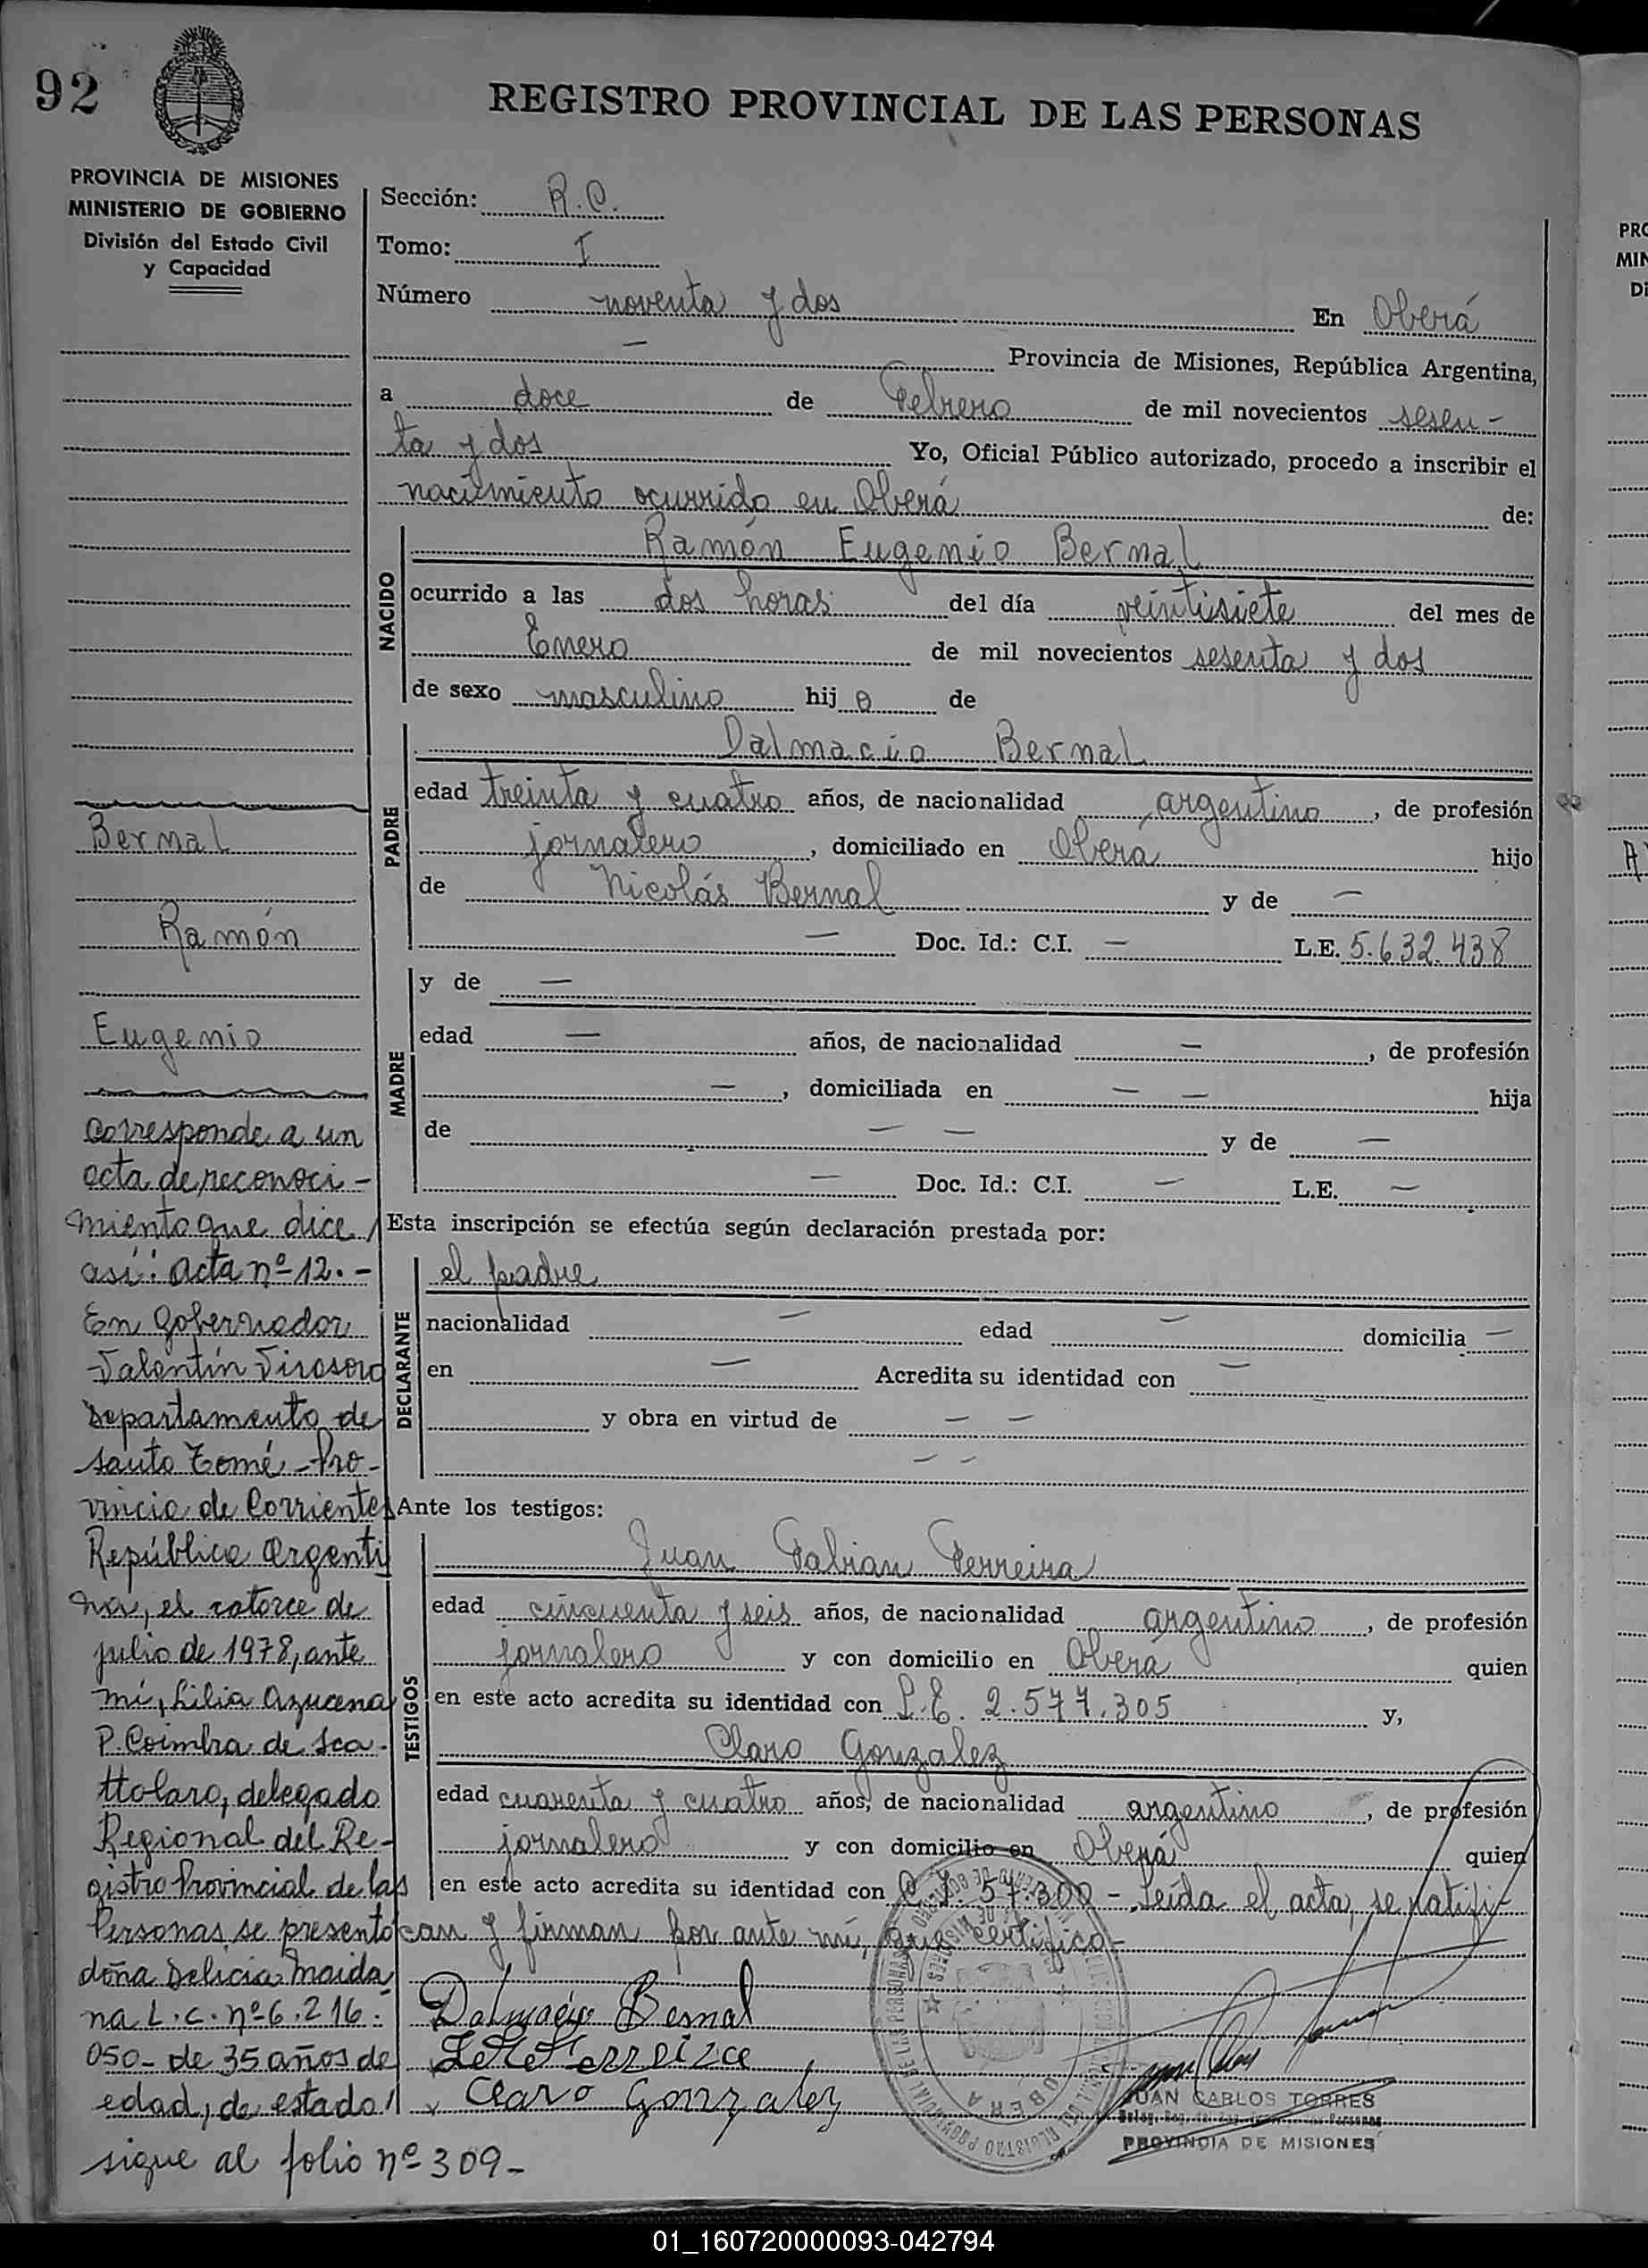 92
REGISTRO PROVINCIAL DE LAS PERSONAS
PROVINCIA DE MISIONES
MINISTERIO DE GOBIERNO
División del Estado Civil
y Capacidad
Sección: R.C.
Tomo: I
Número noventa y dos En Oberá
— Provincia de Misiones, República Argentina,
a doce de Febrero de mil novecientos sesen-
ta y dos Yo, Oficial Público autorizado, procedo a inscribir el
nacimiento ocurrido en Oberá de:
NACIDO
Ramón Eugenio Bernal
ocurrido a las dos horas del día veintisiete del mes de
Enero de mil novecientos sesenta y dos
de sexo masculino hijo de
PADRE
Dalmacio Bernal
edad treinta y cuatro años, de nacionalidad argentino, de profesión
jornalero, domiciliado en Oberá hijo
de Nicolás Bernal y de —
— Doc. Id.: C.I. — L.E. 5.632.438
MADRE
y de —
edad — años, de nacionalidad —, de profesión
—, domiciliada en — — hija
de — — y de —
— Doc. Id.: C.I. — L.E. —
Esta inscripción se efectúa según declaración prestada por:
DECLARANTE
el padre
nacionalidad — edad — domicilia —
en — Acredita su identidad con —
y obra en virtud de — —
— —
Ante los testigos:
TESTIGOS
Juan Fabian Ferreira
edad cincuenta y seis años, de nacionalidad argentino, de profesión
jornalero y con domicilio en Oberá quien
en este acto acredita su identidad con L.E. 2.577.305 y,
Claro Gonzalez
edad cuarenta y cuatro años, de nacionalidad argentino, de profesión
jornalero y con domicilio en Oberá quien
en este acto acredita su identidad con C.I. 57.300 - Leída el acta, se ratifi-
can y firman por ante mí, que certifico-
Dalmacio Bernal
Claro Gonzalez
OBERA
JUAN CARLOS TORRES
PROVINCIA DE MISIONES
Bernal
Ramón
Eugenio
Corresponde a un
acta de reconoci-
miento que dice
así: Acta nº 12.-
En Gobernador
Valentín Virasoro
Departamento de
Santo Tomé - Pro-
vincia de Corrientes
República Argenti
na, el catorce de
julio de 1978, ante
mí, Lilia Azucena
P. Coimbra de Sca-
ttolaro, delegado
Regional del Re-
gistro Provincial de las
Personas, se presento
doña Delicia Maida
na L.C. nº 6.216.
050- de 35 años de
edad, de estado
sigue al folio nº 309-
01_160720000093-042794